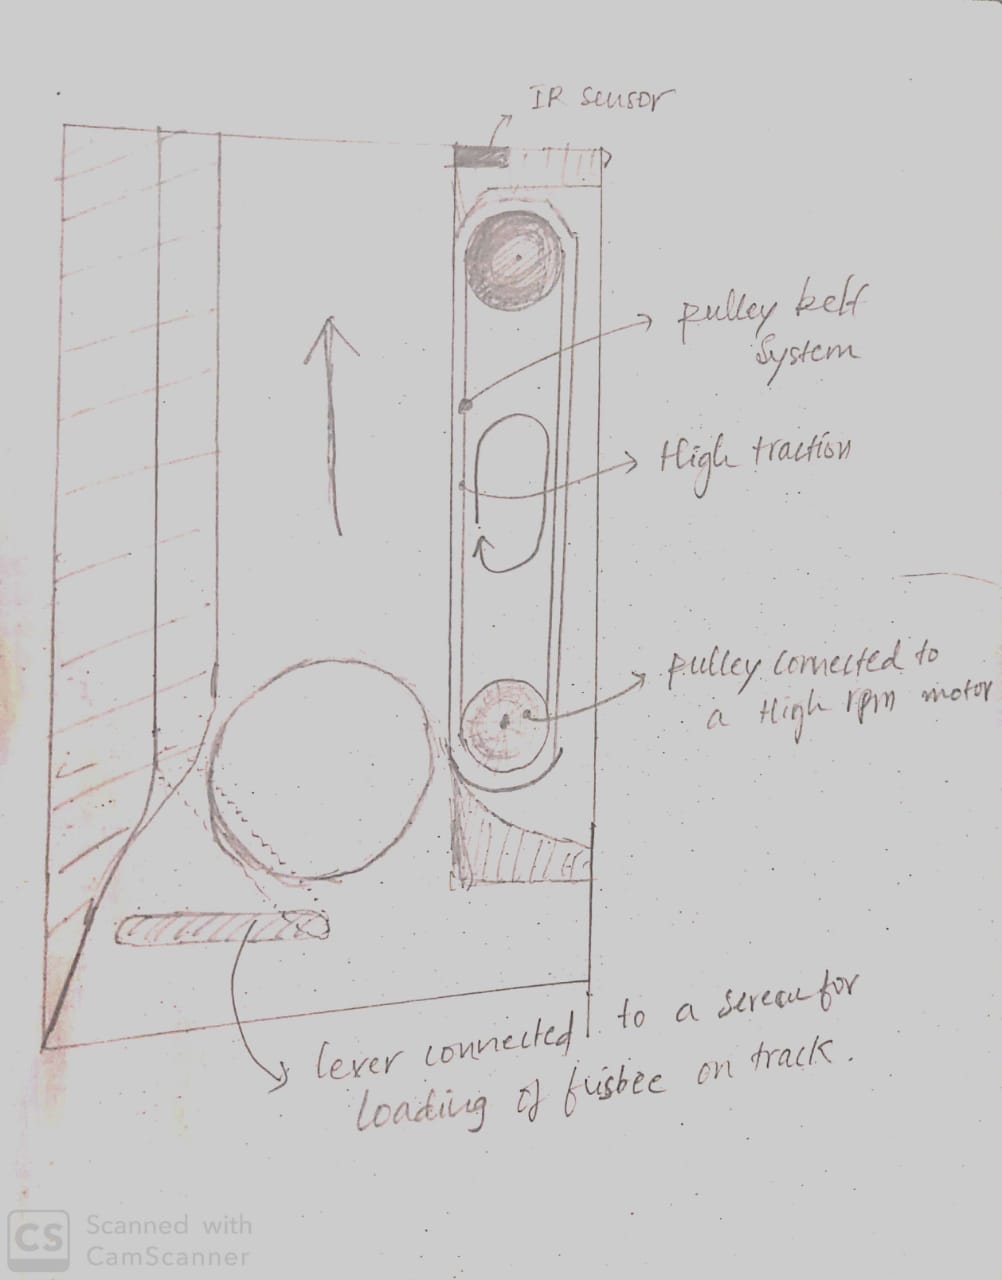 IR sensor
pulley belt
system
High traction
pulley connected to
a High rpm motor
lever connected to a screw for
loading of frisbee on track.
CS
Scanned with
CamScanner